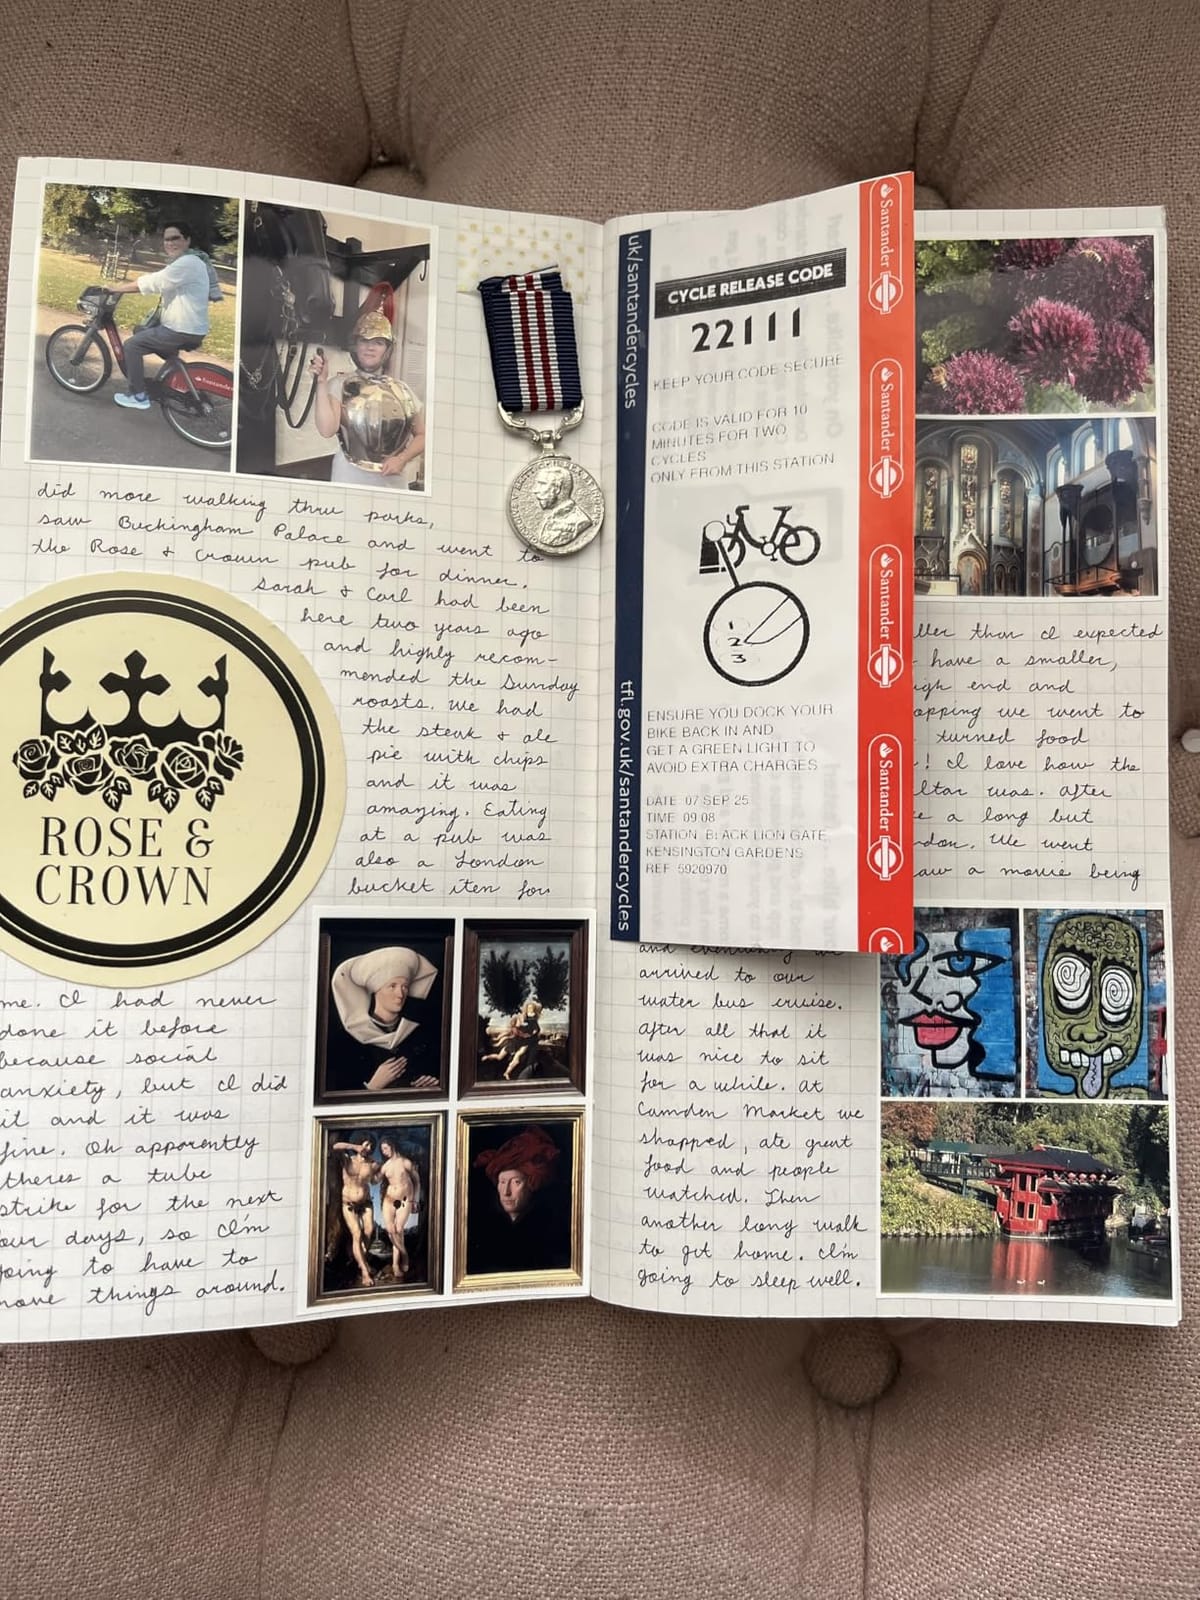 did more walking thru parks,
saw Buckingham Palace and went to
the Rose & Crown pub for dinner.
Sarah & Carl had been
here two years ago
and highly recom-
mended the Sunday
roasts. We had
the steak & ale
pie with chips
and it was
amazing. Eating
at a pub was
also a London
bucket item for
ROSE &
CROWN
me. I had never
done it before
because social
anxiety, but I did
it and it was
fine. Oh apparently
theres a tube
strike for the next
our days, so I'm
going to have to
move things around.
Santander
uk/santandercycles
tfl.gov.uk/santandercycles
CYCLE RELEASE CODE
22111
KEEP YOUR CODE SECURE
CODE IS VALID FOR 10
MINUTES FOR TWO
CYCLES
ONLY FROM THIS STATION
1
2
3
ENSURE YOU DOCK YOUR
BIKE BACK IN AND
GET A GREEN LIGHT TO
AVOID EXTRA CHARGES
DATE 07 SEP 25
TIME 09:08
STATION BLACK LION GATE,
KENSINGTON GARDENS
REF 5920970
Santander
Santander
Santander
Santander
and eventually we
arrived to our
water bus cruise.
After all that it
was nice to sit
for a while. At
Camden Market we
shopped, ate great
food and people
watched. Then
another long walk
to get home. I'm
going to sleep well.
ller than I expected
have a smaller,
igh end and
opping we went to
turned food
! I love how the
ltar was. After
e a long but
ndon. We went
aw a movie being